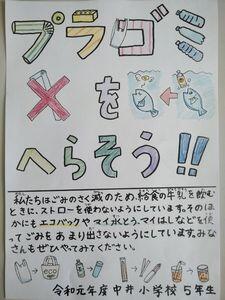 プラゴミ
を
へらそう!!
私たちはごみのさく減のため、給食の牛乳を飲む
ときに、ストローを使わないようにしています。そのほ
かにもエコバックやマイ水とう、マイはしなどを使
ってごみをあまり出さないようにしています。みな
さんもぜひやってみてください。
eco
令和元年度中井小学校5年生